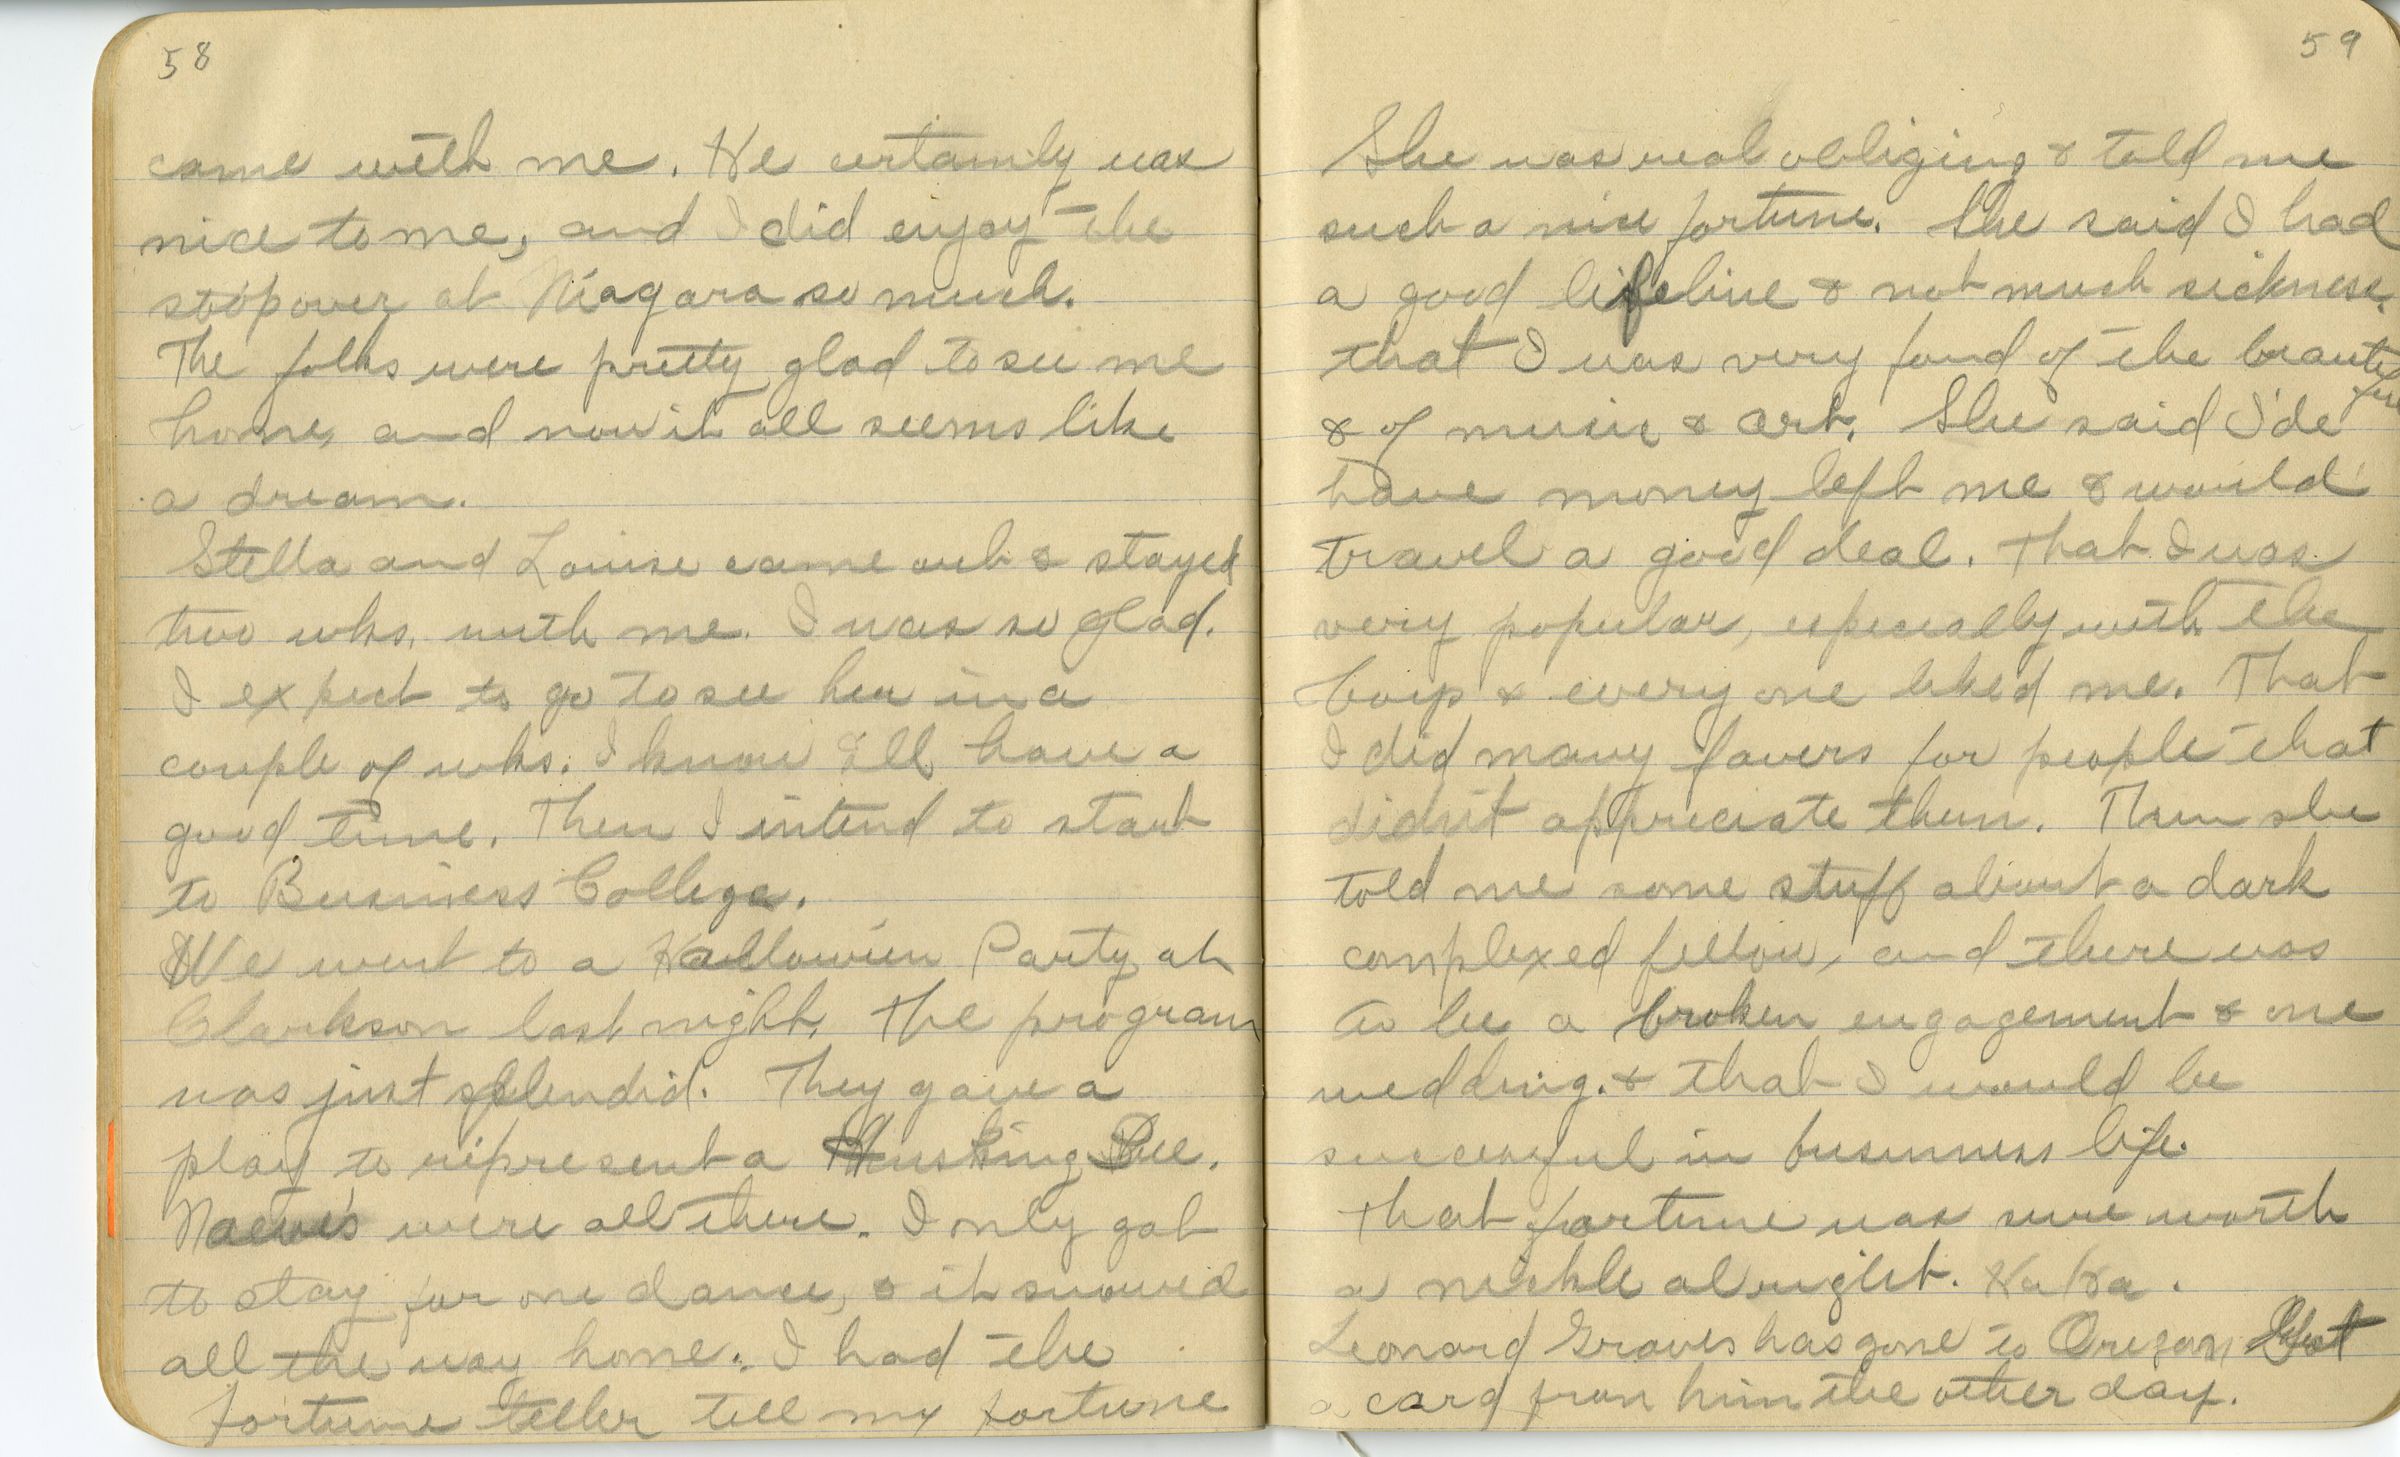 58
came with me. He certainly was
nice to me, and I did enjoy the
stopover at Niagara so much.
The folks were pretty glad to see me
home, and now it all seems like
a dream.
Stella and Louise came out & stayed
two wks. with me. I was so glad.
I expect to go to see her in a
couple of wks. I know I'll have a
good time. Then I intend to start
to Business College.
We went to a Hallowien Party at
Clarkson last night. The program
was just splendid. They gave a
play to represent a Husking Bee.
Naeve's were all there. I only got
to stay for one dance, & it snowed
all the way home. I had the
fortune teller tell my fortune
59
She was real obliging & told me
such a nice fortune. She said I had
a good lifeline & not much sickness.
that I was very fond of the beautiful
& of music & art. She said I'de
have money left me & would
travel a good deal. That I was
very popular, especially with the
boys & every one liked me. That
I did many favers for people that
didn't appreciate them. Then she
told me some stuff about a dark
complexed fellow, and there was
to be a broken engagement & one
wedding. & that I would be
successful in businness life.
That fortune was sure worth
a nickle alright. Ha Ha.
Leonard Graves has gone to Oregon Got
a card from him the other day.